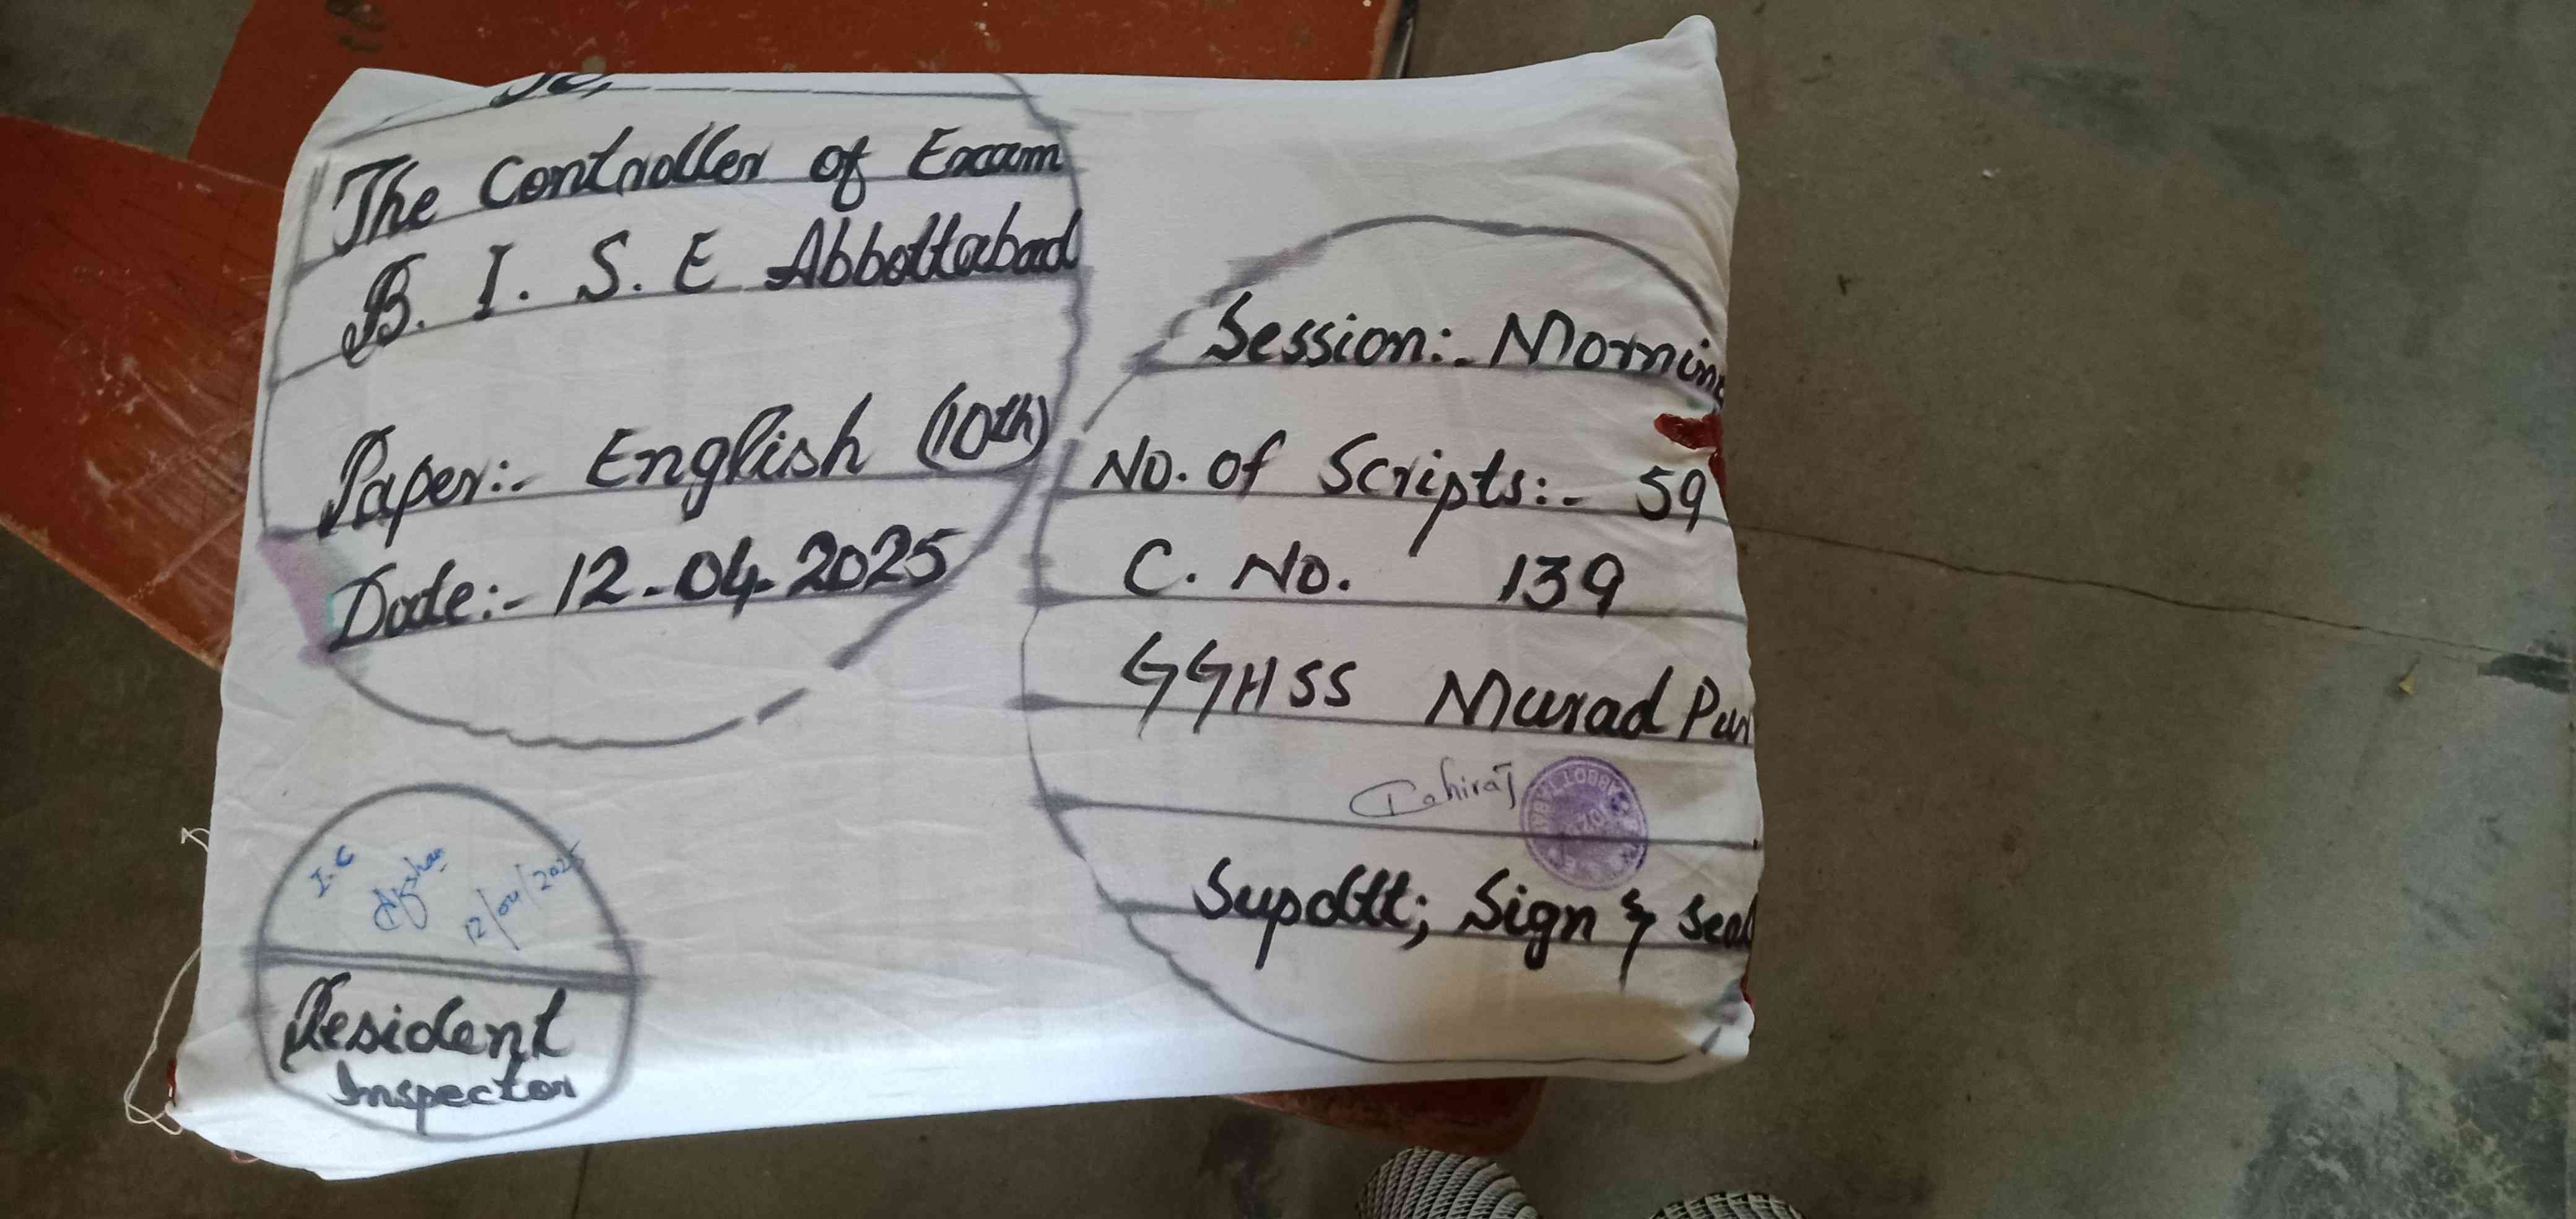 To,
The Controller of Exam
B. I. S. E Abbottabad
Paper:- English (10th)
Date:- 12-04-2025
Session:- Morning
No. of Scripts:- 59
C. No. 139
GGHSS Murad Pur
Supdtt; Sign & Seal
I.C
Afshan
12/04/2025
Resident
Inspector